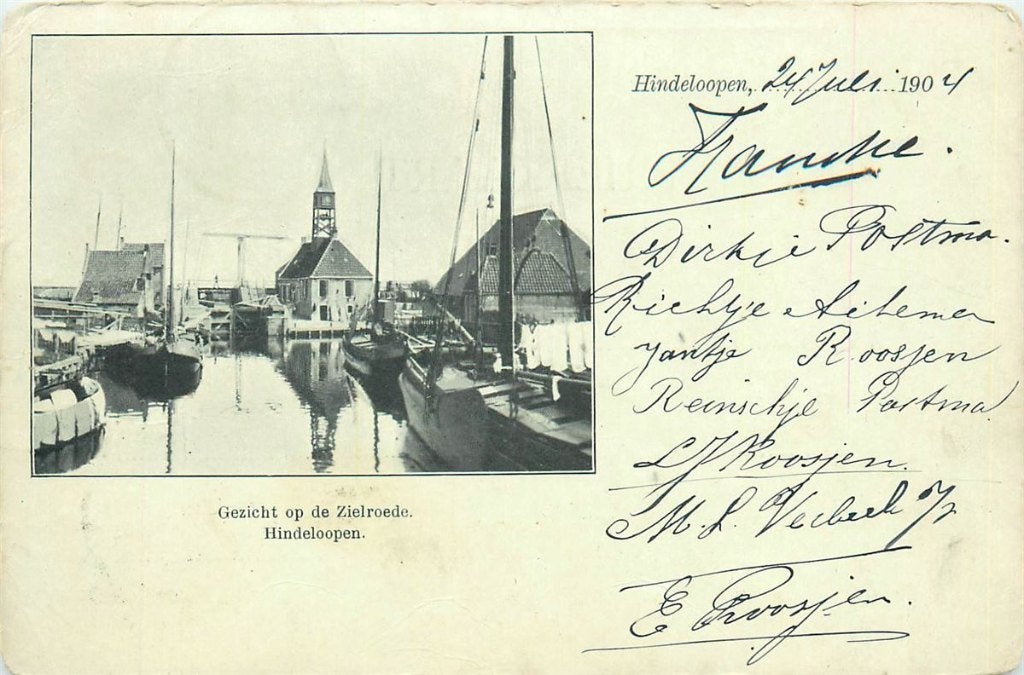 Gezicht op de Zielroede.
Hindeloopen.
Hindeloopen, 24 Juli 1904
Dirkje Postma.
Richtje
Jantje Roosjen
Reinschje Postma
L J Roosjen.
M. L.
E Roosjen.